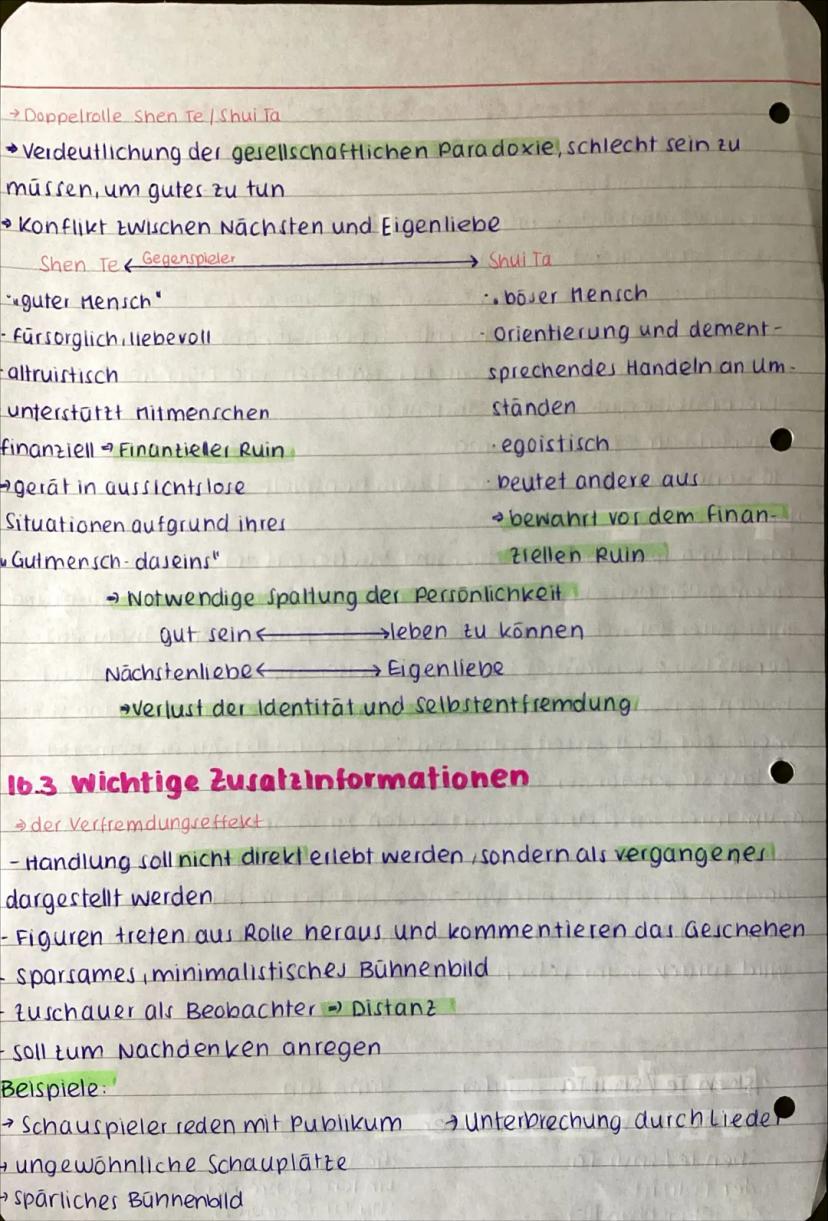 → Doppelrolle Shen Te / Shui Ta
→ Verdeutlichung der gesellschaftlichen Paradoxie, schlecht sein zu
müssen, um gutes zu tun
→ Konflikt zwischen Nächsten und Eigenliebe
Shen Te ← Gegenspieler → Shui Ta
· "guter Mensch"
· fürsorglich, liebevoll
· altruistisch
unterstützt Mitmenschen
finanziell → Finanzieller Ruin
→ gerät in aussichtslose
Situationen aufgrund ihres
"Gutmensch-daseins"
· böser Mensch
· Orientierung und dement-
sprechendes Handeln an Um-
ständen
· egoistisch
· beutet andere aus
→ bewahrt vor dem finan-
ziellen Ruin
→ Notwendige Spaltung der Persönlichkeit
gut sein ↔ leben zu können
Nächstenliebe ↔ Eigenliebe
→ Verlust der Identität und Selbstentfremdung
16.3 Wichtige Zusatzinformationen
→ der Verfremdungseffekt
- Handlung soll nicht direkt erlebt werden, sondern als vergangenes
dargestellt werden
- Figuren treten aus Rolle heraus und kommentieren das Geschehen
- sparsames, minimalistisches Bühnenbild
- Zuschauer als Beobachter → Distanz
- soll zum Nachdenken anregen
Beispiele:
→ Schauspieler reden mit Publikum → Unterbrechung durch Lieder
→ ungewöhnliche Schauplätze
→ spärliches Bühnenbild